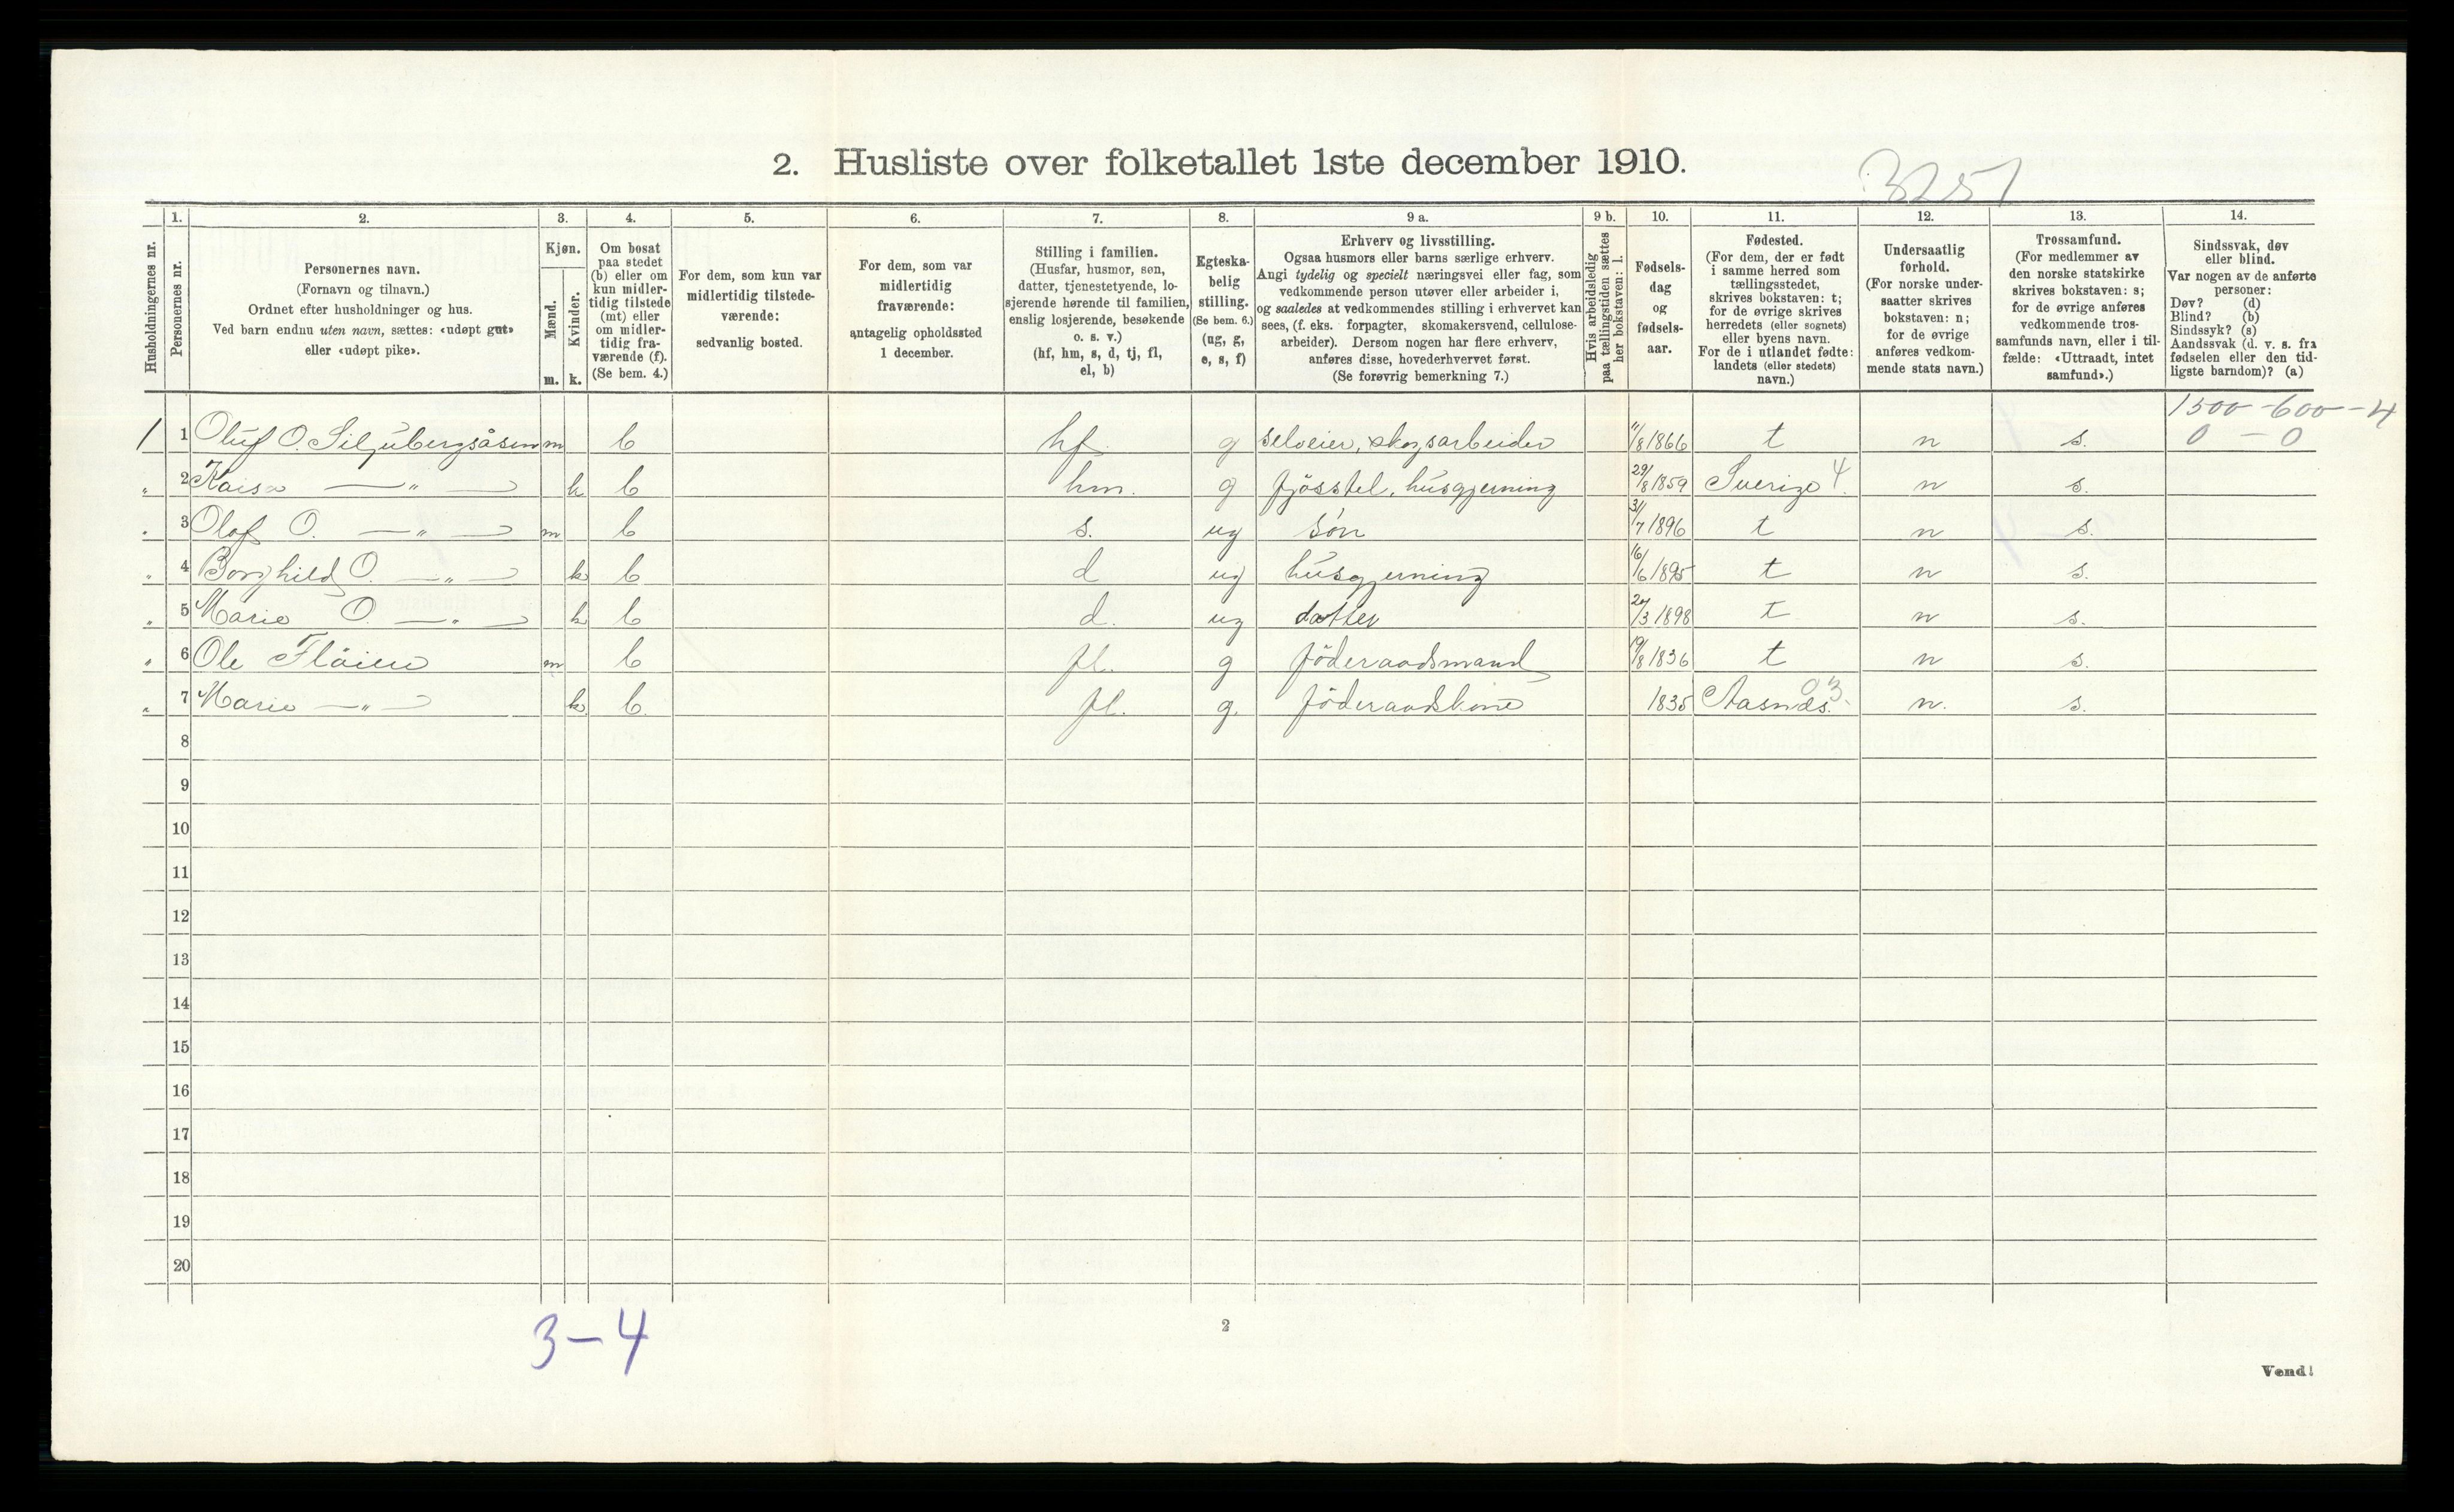 2. Husliste over folketallet 1ste december 1910.
3251
Husholdningernes nr.
1. Personernes nr.
2. Personernes navn. (Fornavn og tilnavn.) Ordnet efter husholdninger og hus. Ved barn endnu uten navn, sættes: «udøpt gut» eller «udøpt pike».
3. Kjøn. Mænd. m. Kvinder. k.
4. Om bosat paa stedet (b) eller om kun midlertidig tilstede (mt) eller om midlertidig fraværende (f). (Se bem. 4.)
5. For dem, som kun var midlertidig tilstedeværende: sedvanlig bosted.
6. For dem, som var midlertidig fraværende: antagelig opholdssted 1 december.
7. Stilling i familien. (Husfar, husmor, søn, datter, tjenestetyende, losjerende hørende til familien, enslig losjerende, besøkende o. s. v.) (hf, hm, s, d, tj, fl, el, b)
8. Egteskabelig stilling. (Se bem. 6.) (ug, g, e, s, f)
9 a. Erhverv og livsstilling. Ogsaa husmors eller barns særlige erhverv. Angi tydelig og specielt næringsvei eller fag, som vedkommende person utøver eller arbeider i, og saaledes at vedkommendes stilling i erhvervet kan sees, (f. eks. forpagter, skomakersvend, cellulosearbeider). Dersom nogen har flere erhverv, anføres disse, hovederhvervet først. (Se forøvrig bemerkning 7.)
9 b. Hvis arbeidsledig paa tællingstiden sættes her bokstaven: l.
10. Fødselsdag og fødselsaar.
11. Fødested. (For dem, der er født i samme herred som tællingsstedet, skrives bokstaven: t; for de øvrige skrives herredets (eller sognets) eller byens navn. For de i utlandet fødte: landets (eller stedets) navn.)
12. Undersaatlig forhold. (For norske undersaatter skrives bokstaven: n; for de øvrige anføres vedkommende stats navn.)
13. Trossamfund. (For medlemmer av den norske statskirke skrives bokstaven: s; for de øvrige anføres vedkommende trossamfunds navn, eller i tilfælde: «Uttraadt, intet samfund».)
14. Sindssvak, døv eller blind. Var nogen av de anførte personer: Døv? (d) Blind? (b) Sindssyk? (s) Aandssvak (d. v. s. fra fødselen eller den tidligste barndom)? (a)
1500-600-4
1 1 Oluf O. Siljubergsåsen m b hf. g selveier, skogsarbeider 11/8 1866 t n s. 0 - 0
„ 2 Kaisa —„— k b hm. g fjösstel, husgjerning 29/8 1859 Sverige 4. n s.
„ 3 Olof O. —„— m b s. ug sön 31/7 1896 t n s.
„ 4 Borghild O. —„— k b d ug husgjerning 16/6 1895 t n s.
„ 5 Marie O. —„— k b d. ug datter 20/3 1898 t n s.
„ 6 Ole Flöien m b fl. g föderaadsmand 19/8 1836 t n s.
„ 7 Marie —„— k b. fl. g. föderaadskone 1835 Aasnes. 03. n. s.
8
9
10
11
12
13
14
15
16
17
18
19
20
3-4
2
Vend!